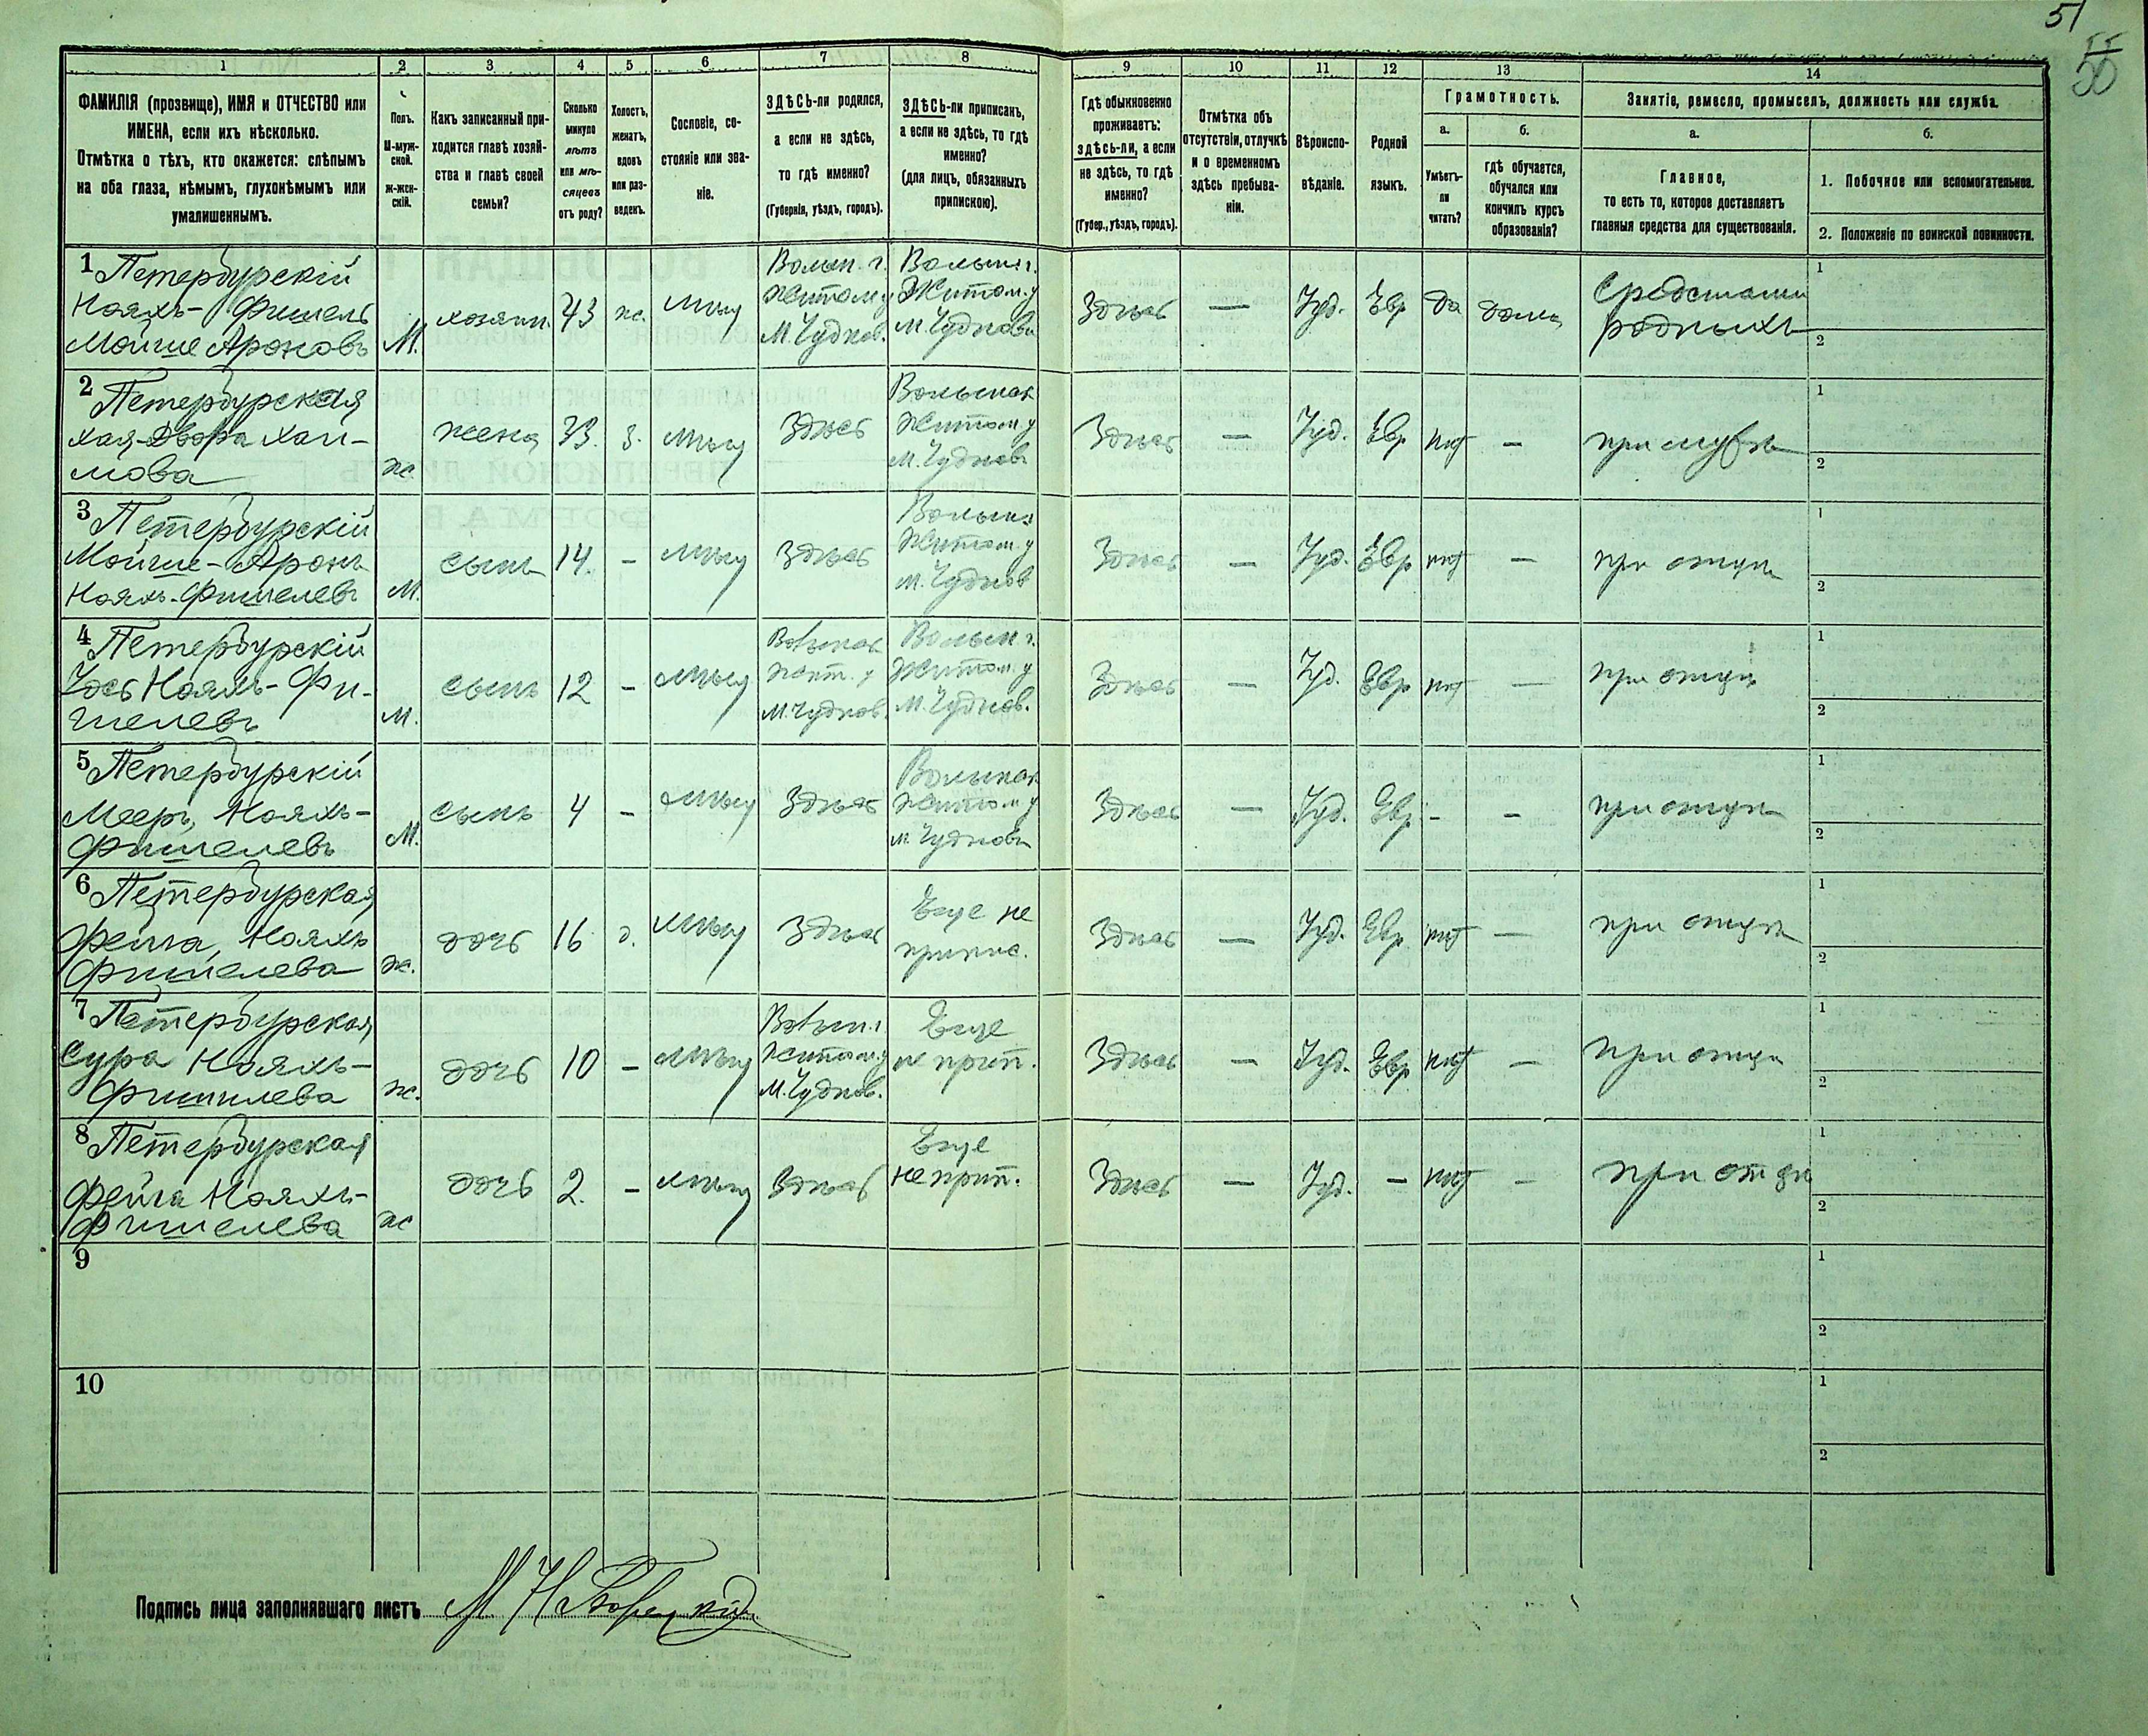 51
55
56
1
2
3
4
5
6
7
8
9
10
11
12
13
14
ФАМИЛІЯ (прозвище), ИМЯ и ОТЧЕСТВО или
ИМЕНА, если ихъ нѣсколько.
Отмѣтка о тѣхъ, кто окажется: слѣпымъ
на оба глаза, нѣмымъ, глухонѣмымъ или
умалишеннымъ.
Полъ.
М-муж-
ской.
Ж-жен-
скій.
Какъ записанный при-
ходится главѣ хозяй-
ства и главѣ своей
семьи?
Сколько
минуло
лѣтъ
или мѣ-
сяцевъ
отъ роду?
Холостъ,
женатъ,
вдовъ
или раз-
веденъ.
Сословіе, со-
стояніе или зва-
ніе.
ЗДѢСЬ-ли родился,
а если не здѣсь,
то гдѣ именно?
(Губернія, уѣздъ, городъ).
ЗДѢСЬ-ли приписанъ,
а если не здѣсь, то гдѣ
именно?
(для лицъ, обязанныхъ
припискою).
Гдѣ обыкновенно
проживаетъ:
здѣсь-ли, а если
не здѣсь, то гдѣ
именно?
(Губер., уѣздъ, городъ).
Отмѣтка объ
отсутствіи, отлучкѣ
и о временномъ
здѣсь пребыва-
ніи.
Вѣроиспо-
вѣданіе.
Родной
языкъ.
Грамотность.
а.
б.
Умѣетъ-
ли
читать?
гдѣ обучается,
обучался или
кончилъ курсъ
образованія?
Занятіе, ремесло, промыселъ, должность или служба.
а.
б.
Главное,
то есть то, которое доставляетъ
главныя средства для существованія.
1. Побочное или вспомогательное.
2. Положеніе по воинской повинности.
1 Петербурскій
Нояхъ-Фишель
Мойше Ароновъ
М.
хозяин.
43
ж.
мѣщ
Волын. г.
Житом. у
М. Чуднов.
Волын. г.
Житом. у
М. Чудновъ
Здѣсь
—
Іуд.
Евр
да
дома
Средствами
родныхъ
1
2
2 Петербурская
Хая-Двора Хаи-
мова
ж.
жена
33.
з.
мѣщ
Здѣсь
Волынск
Житом у
М. Чудновъ
Здѣсь
—
Іуд.
Евр
нѣт
—
при мужѣ
1
2
3 Петербурскій
Мойше-Аронъ
Нояхъ-Фишелевъ
М.
сынъ
14.
-
мѣщ
Здѣсь
Волын.
Житом у
М. Чуднов
Здѣсь
—
Іуд.
Евр
нѣт
—
при отцѣ
1
2
4 Петербурскій
Іось Нояхъ-Фи-
шелевъ
М.
сынъ
12
-
мѣщ
Волынск
Жит. у
М. Чуднов.
Волын г.
Житом. у
М. Чуднов.
Здѣсь
—
Іуд.
Евр
нѣт
—
при отцѣ
1
2
5 Петербурскій
Мееръ, Нояхъ-
Фишелевъ
М.
сынъ
4
-
мѣщ
Здѣсь
Волынск
Житом у
М. Чудновъ
Здѣсь
—
Іуд.
Евр.
-
-
при отцѣ
1
2
6 Петербурская
Фейга, Нояхъ
Фишелева
ж.
дочь
16
д.
мѣщ
Здѣсь
Еще не
припис.
Здѣсь
—
Іуд.
Евр
нѣт
—
при отцѣ
1
2
7 Петербурская
Сура Нояхъ-
Фишилева
ж.
дочь
10
-
мѣщ
Волын. г.
Житом. у
М. Чуднов.
Еще
не прип.
Здѣсь
—
Іуд.
Евр
нѣт
—
при отцѣ
1
2
8 Петербурская
Фейга Нояхъ-
Фишелева
ж
дочь
2.
-
мѣщ
Здѣсь
Еще
не прип.
Здѣсь
—
Іуд.
-
нѣт
-
при отцѣ
1
2
9
1
2
10
1
2
Подпись лица заполнявшаго листъ